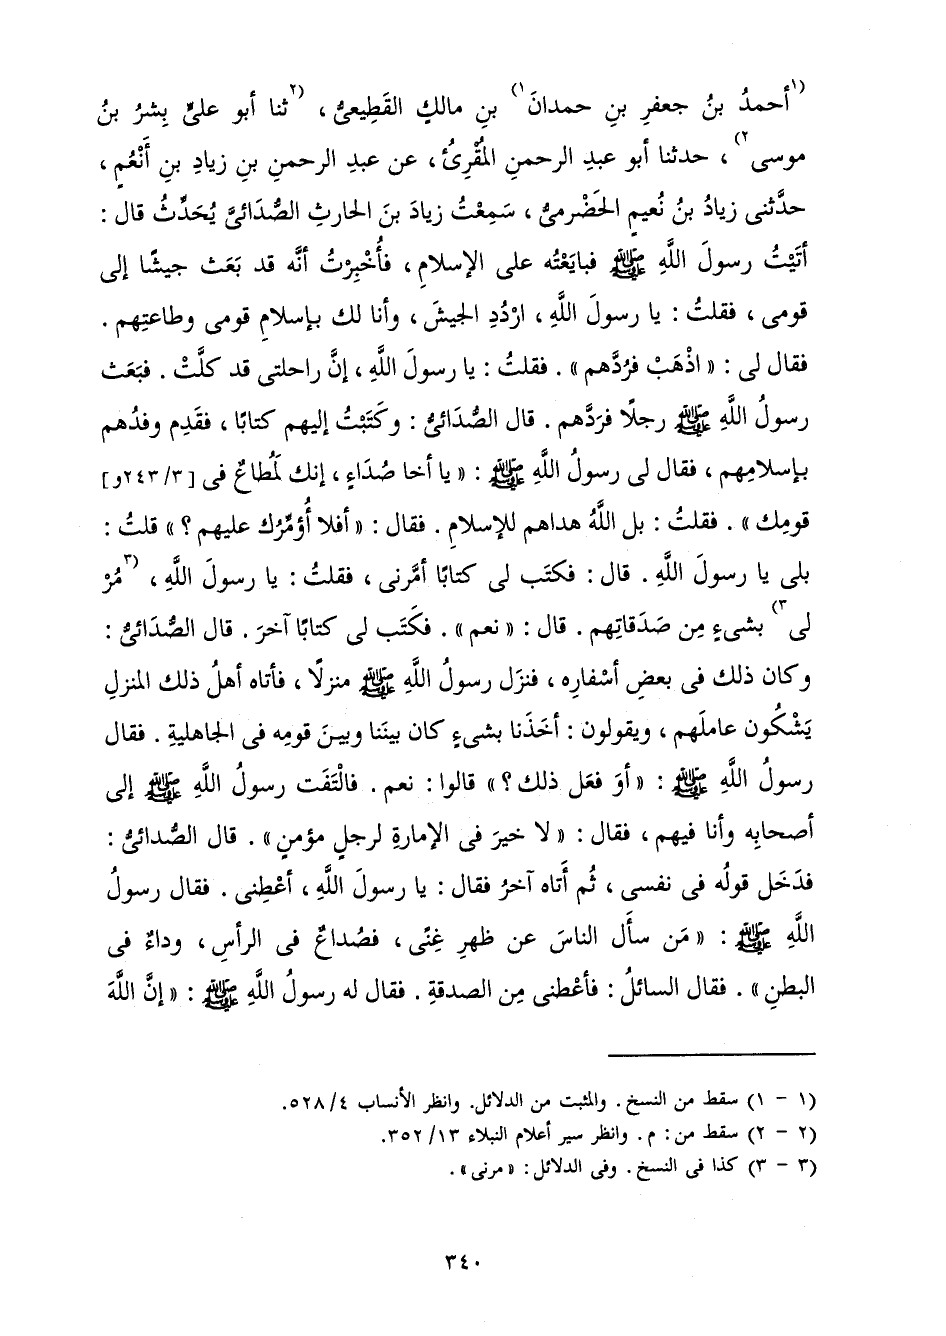 ⁽¹أحمدُ بنُ جعفرِ بنِ حمدانَ¹⁾ بنِ مالكٍ القَطِيعىُّ ، ⁽²ثنا أبو علىٍّ بِشرُ بنُ
موسى²⁾ ، حدثنا أبو عبدِ الرحمنِ المُقْرِئُ ، عن عبدِ الرحمنِ بنِ زيادِ بنِ أَنْعُمٍ ،
حدَّثنى زيادُ بنُ نُعيمٍ الحَضْرمىُّ ، سَمِعْتُ زيادَ بنَ الحارثِ الصُّدَائىَّ يُحَدِّثُ قال :
أتَيْتُ رسولَ اللَّهِ ﷺ فبايَعْتُه على الإسلامِ ، فأُخْبِرْتُ أنَّه قد بَعَث جيشًا إلى
قومى ، فقلتُ : يا رسولَ اللَّهِ ، ارْدُدِ الجيشَ ، وأنا لك بإسلامِ قومى وطاعتِهم .
فقال لى : « اذْهَبْ فرُدَّهم » . فقلتُ : يا رسولَ اللَّهِ ، إنَّ راحلتى قد كلَّتْ . فبَعَث
رسولُ اللَّهِ ﷺ رجلًا فردَّهم . قال الصُّدَائىُّ : وكَتَبْتُ إليهم كتابًا ، فقَدِم وفدُهم
بإسلامِهم ، فقال لى رسولُ اللَّهِ ﷺ : « يا أخا صُدَاءٍ ، إنك لَمُطاعٌ فى [ ٣/ ٢٤٣و]
قومِك » . فقلتُ : بل اللَّهُ هداهم للإسلامِ . فقال : « أفلا أُؤمِّرُك عليهم ؟ » قلتُ :
بلى يا رسولَ اللَّهِ . قال : فكتَب لى كتابًا أمَّرنى ، فقلتُ : يا رسولَ اللَّهِ ، ⁽³مُرْ
لى³⁾ بشىءٍ مِن صَدَقاتِهم . قال : « نعم » . فكَتَب لى كتابًا آخرَ . قال الصُّدَائىُّ :
وكان ذلك فى بعضِ أسْفارِه ، فنزَل رسولُ اللَّهِ ﷺ منزلًا ، فأتاه أهلُ ذلك المنزلِ
يَشْكُون عاملَهم ، ويقولون : أخَذَنا بشىءٍ كان بينَنا وبينَ قومِه فى الجاهليةِ . فقال
رسولُ اللَّهِ ﷺ : « أوَ فعَل ذلك ؟ » قالوا : نعم . فالْتَفَت رسولُ اللَّهِ ﷺ إلى
أصحابِه وأنا فيهم ، فقال : « لا خيرَ فى الإمارةِ لرجلٍ مؤمنٍ » . قال الصُّدائىُّ :
فدَخَل قولُه فى نفسى ، ثُم أَتاه آخرُ فقال : يا رسولَ اللَّهِ ، أعْطِنى . فقال رسولُ
اللَّهِ ﷺ : « مَن سأَل الناسَ عن ظهرِ غِنًى ، فصُداعٌ فى الرأسِ ، وداءٌ فى
البطنِ » . فقال السائلُ : فأعْطنى مِن الصدقةِ . فقال له رسولُ اللَّهِ ﷺ : « إنَّ اللَّهَ
(١ - ١) سقط من النسخ . والمثبت من الدلائل. وانظر الأنساب ٤/ ٥٢٨.
(٢ - ٢) سقط من : م . وانظر سير أعلام النبلاء ١٣/ ٣٥٢.
(٣ - ٣) كذا فى النسخ . وفى الدلائل : « مرنى » .
٣٤٠